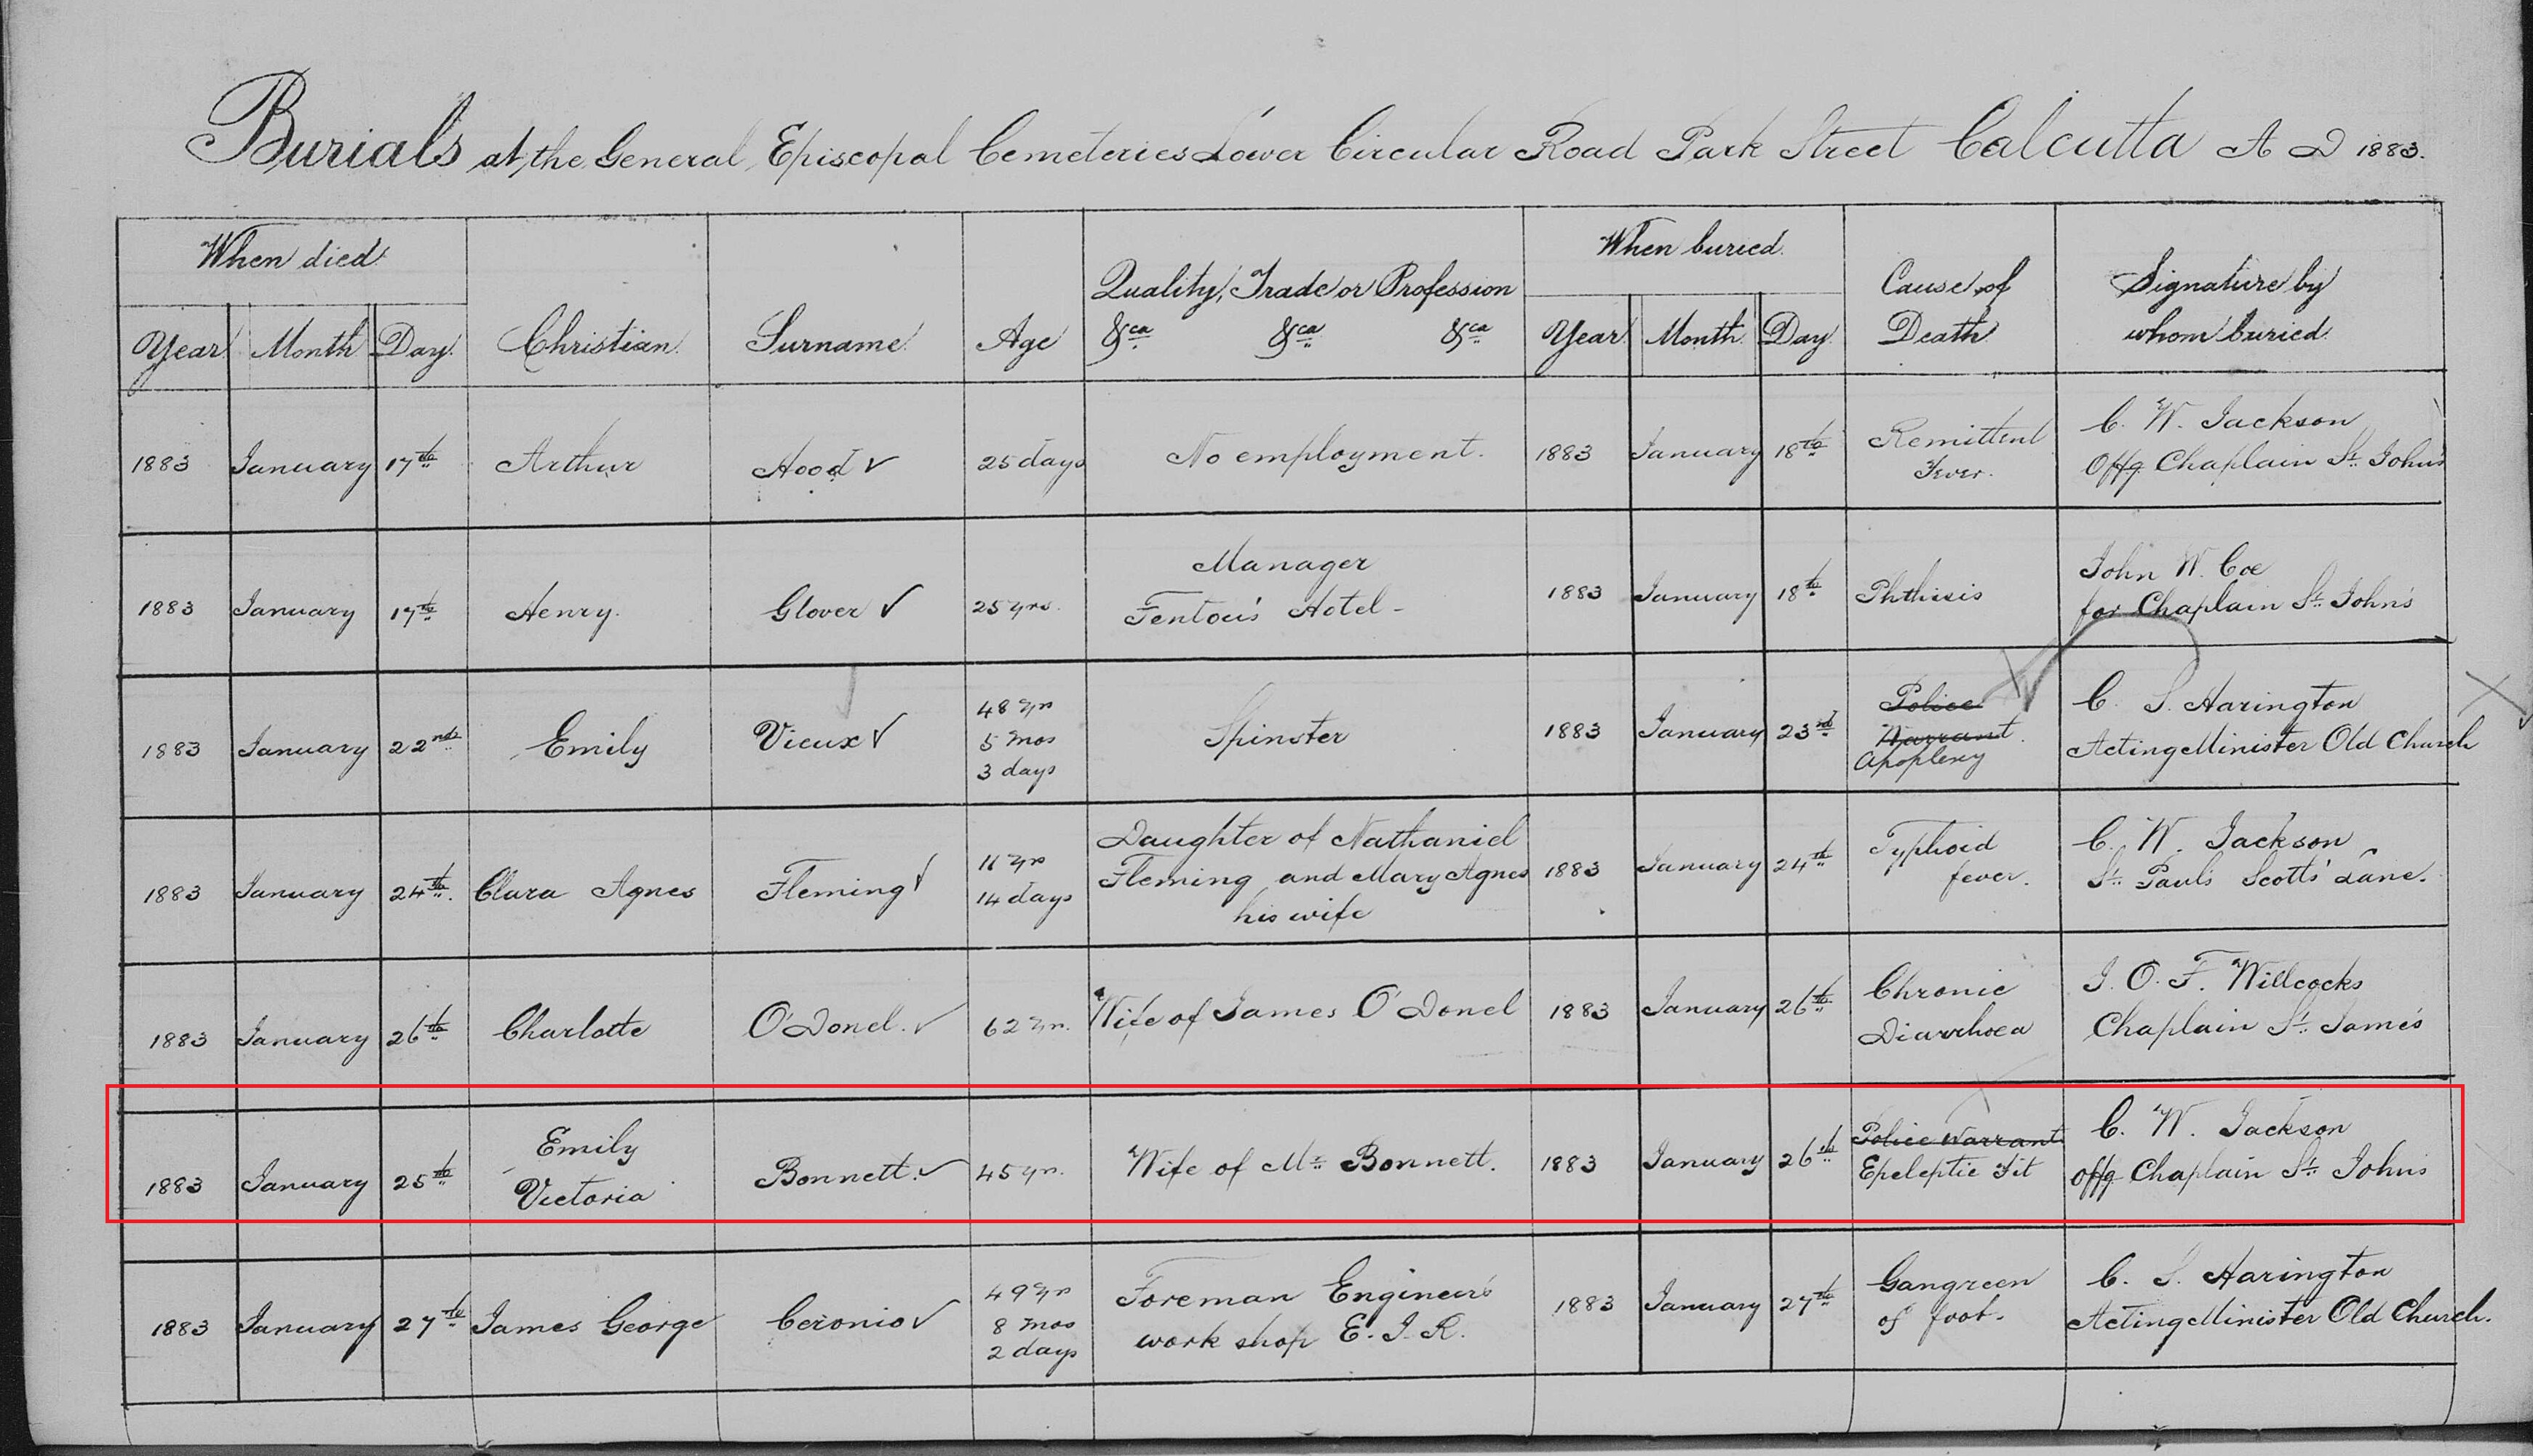 Burials at the General Episcopal Cemeteries Lower Circular Road Park Street Calcutta A D 1883.
When died
Year Month Day
Christian
Surname
Age
Quality, Trade or Profession
&ca &ca &ca
When buried
Year Month Day
Cause of
Death
Signature by
whom buried
1883 January 17th Arthur Hood ✓ 25 days No employment. 1883 January 18th
Remittent
Fever.
C. W. Jackson
Offg. Chaplain St. John's
1883 January 17th Henry. Glover ✓ 25 yrs.
Manager
Fenton's Hotel -
1883 January 18th Phthisis
John W. Coe
for Chaplain St. John's
1883 January 22nd Emily Vieux ✓
48 yrs
5 mos
3 days
Spinster
1883 January 23rd
Police
Warrant.
Apoplexy
C. S. Harington
Acting Minister Old Church
1883 January 24th. Clara Agnes Fleming ✓
11 yrs
14 days
Daughter of Nathaniel
Fleming and Mary Agnes
his wife
1883 January 24th
Typhoid
fever.
C. W. Jackson
St. Paul's Scotts' Lane.
1883 January 26th Charlotte O'Donel. ✓ 62 yrs. Wife of James O'Donel 1883 January 26th
Chronic
Diarrhoea
J. O. F. Willcocks
Chaplain St. James
1883 January 25th
Emily
Victoria
Bonnett. ✓ 45 yrs. Wife of Mr. Bonnett. 1883 January 26th
Police Warrant
Epeleptic Fit
C. W. Jackson
Offg. Chaplain St. John's
1883 January 27th James George Ceronio ✓
49 yrs
8 mos
2 days
Foreman Engineer's
work shop E. I. R.
1883 January 27th
Gangreen
of foot.
C. S. Harington
Acting Minister Old Church.